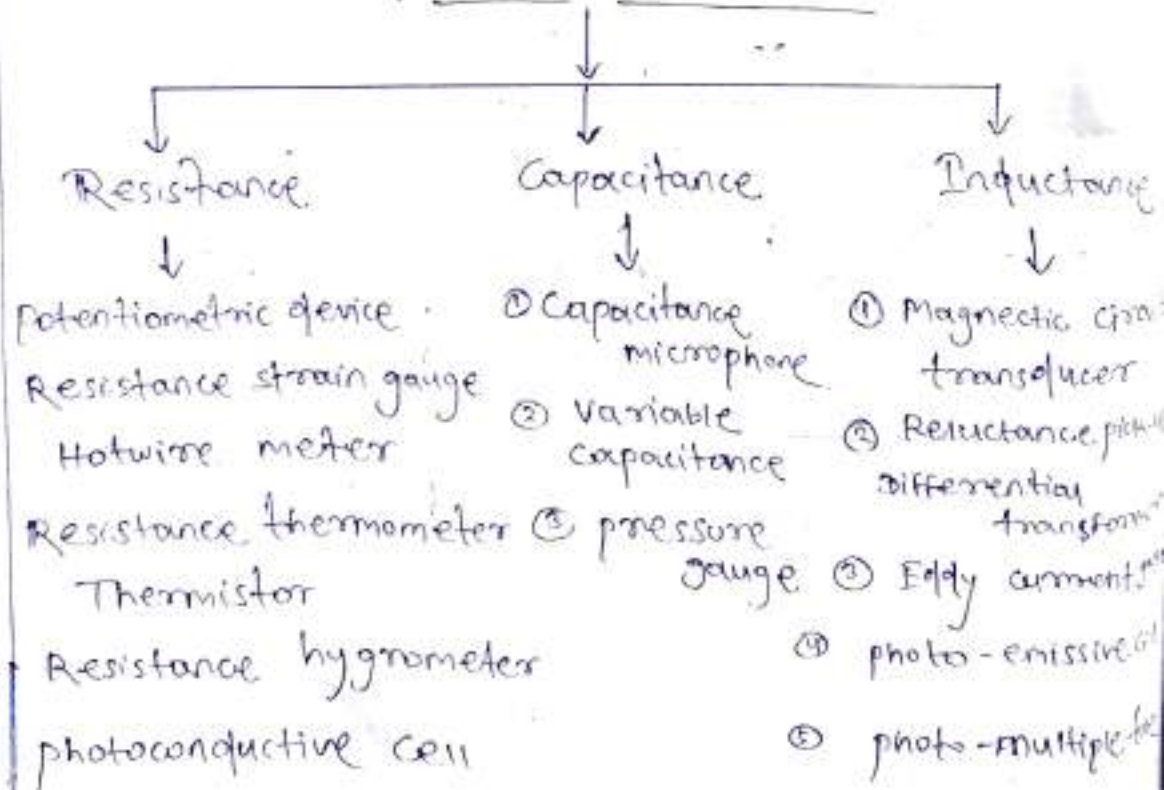 Resistance
Capacitance
Inductance
potentiometric device
Resistance strain gauge
Hotwire meter
Resistance thermometer
Thermistor
Resistance hygrometer
photoconductive cell
① Capacitance
microphone
② variable
capacitance
③ pressure
gauge
① Magnectic
transducer
② Reluctance
Differential
③ Eddy current
④ photo-emissive
⑤ photo-multiple